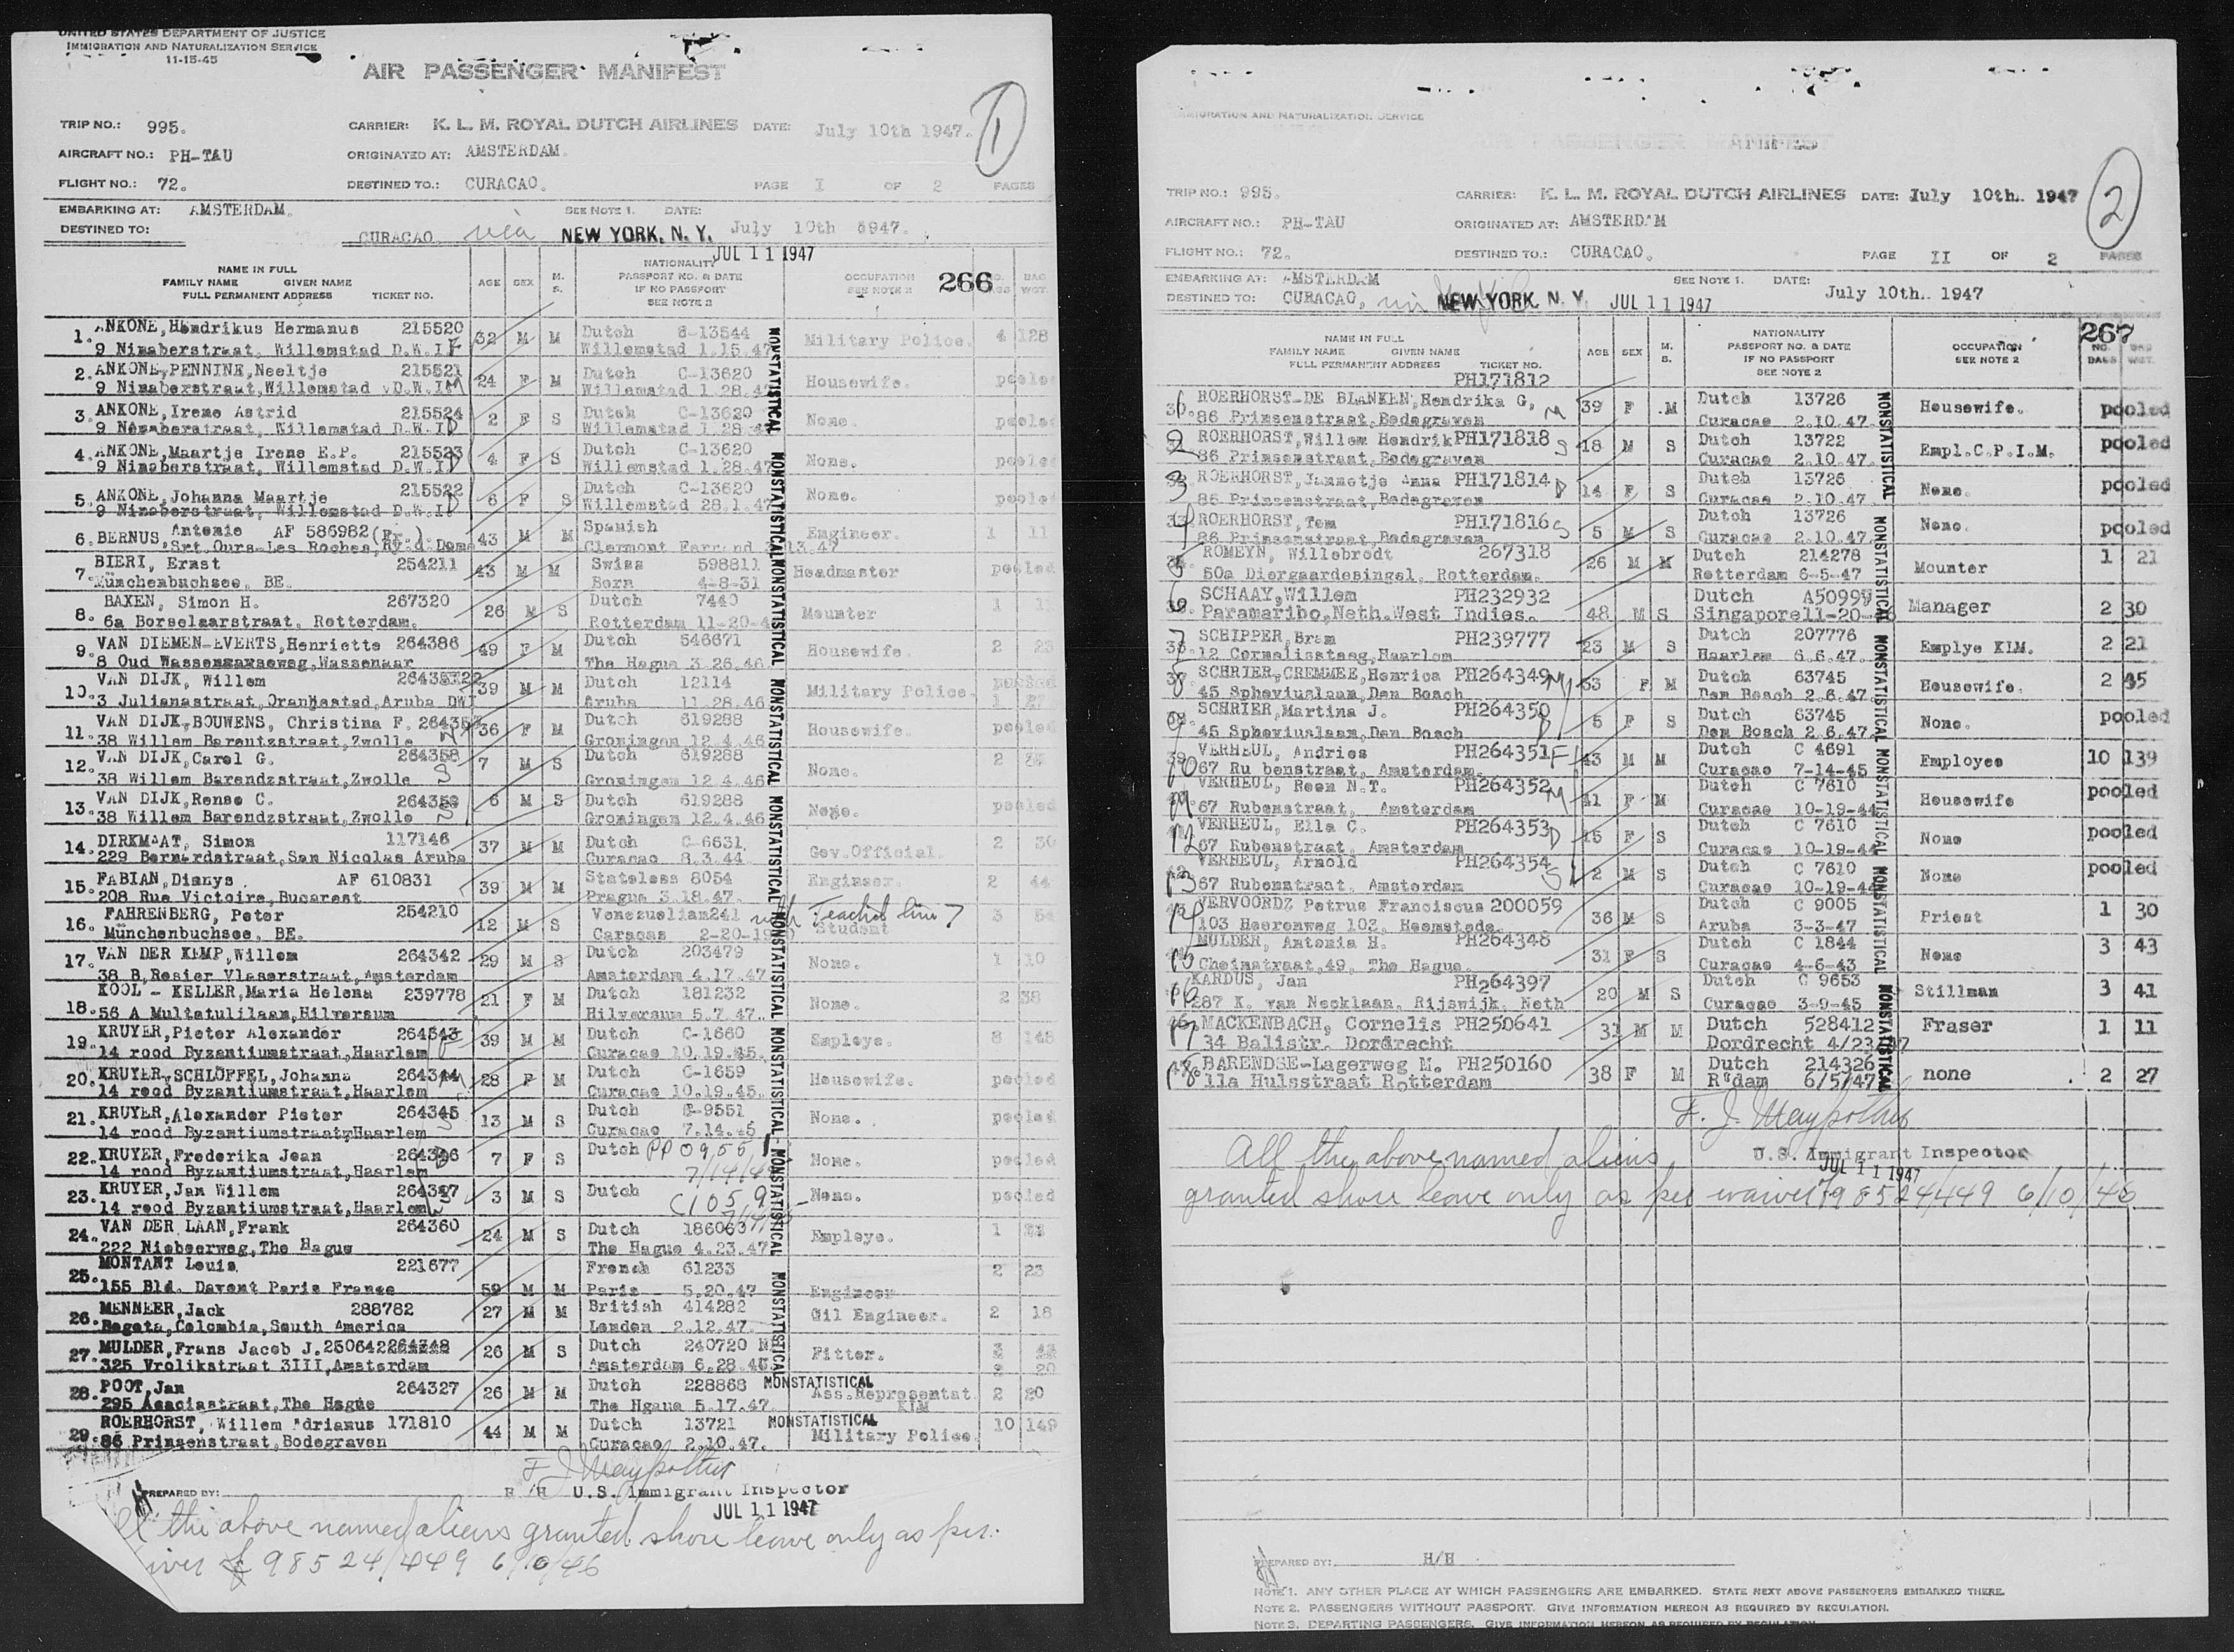 UNITED STATES DEPARTMENT OF JUSTICE
IMMIGRATION AND NATURALIZATION SERVICE
11-15-45
AIR PASSENGER MANIFEST
1
TRIP NO.: 995. CARRIER: K. L. M. ROYAL DUTCH AIRLINES DATE: July 10th 1947.
AIRCRAFT NO.: PH-TAU ORIGINATED AT: AMSTERDAM.
FLIGHT NO.: 72. DESTINED TO.: CURACAO. PAGE I OF 2 PAGES
EMBARKING AT: AMSTERDAM. SEE NOTE 1. DATE:
DESTINED TO: CURACAO via NEW YORK, N. Y. July 10th 1947.
JUL 11 1947
NAME IN FULL
FAMILY NAME GIVEN NAME
FULL PERMANENT ADDRESS TICKET NO.
AGE SEX M. S.
NATIONALITY
PASSPORT NO. & DATE
IF NO PASSPORT
SEE NOTE 2
OCCUPATION
SEE NOTE 2
266
BAG WGT.
1. ANKONE, Hendrikus Hermanus 215520 32 M M Dutch C-13544 Military Police. 4 128
9 Nimaberstraat, Willemstad D.W.I. F Willemstad 1.15.47
2. ANKONE-PENNINE, Neeltje 215521 24 F M Dutch C-13620 Housewife. pooled
9 Nimaberstraat, Willemstad D.W.I. M Willemstad 1.28.47
3. ANKONE, Irene Astrid 215524 2 F S Dutch C-13620 None. pooled
9 Nimaberstraat, Willemstad D.W.I. D Willemstad 1.28.47
4. ANKONE, Maartje Irene E.P. 215523 4 F S Dutch C-13620 None. pooled
9 Nimaberstraat, Willemstad D.W.I. D Willemstad 1.28.47
5. ANKONE, Johanna Maartje 215522 6 F S Dutch C-13620 None. pooled
9 Nimaberstraat, Willemstad D.W.I. D Willemstad 28.1.47
6. BERNUS, Antonio AF 586982 (Fr.) 43 M M Spanish Engineer. 1 11
Srt. Ours-Les Roches, Clermont
7. BIERI, Ernst 254211 43 M M Swiss 598811 Headmaster pooled
Münchenbuchsee, BE. Bern 4-8-31
8. BAXEN, Simon H. 267320 26 M S Dutch 7440 Mounter 1
6a Borselaarstraat, Rotterdam. Rotterdam 11-20-4
9. VAN DIEMEN-EVERTS, Henriette 264386 49 F M Dutch 546671 Housewife. 2 23
8 Oud Wassenaarseweg, Wassenaar The Hague 3.26.46
10. VAN DIJK, Willem 39 M M Dutch 12114 Military Police. 1 27
3 Julianastraat, Oranjestad, Aruba DWI Aruba 11.28.46
11. VAN DIJK-BOUWENS, Christina F. 264357 36 F M Dutch 619288 Housewife. pooled
38 Willem Barentzstraat, Zwolle Groningen 12.4.46
12. VAN DIJK, Carel G. 264358 7 M S Dutch 619288 None. 2
38 Willem Barendzstraat, Zwolle S Groningen 12.4.46
13. VAN DIJK, Rense C. 264359 6 M S Dutch 619288 None. pooled
38 Willem Barendzstraat, Zwolle S Groningen 12.4.46
14. DIRKMAAT, Simon 117146 37 M M Dutch C-6631 Gov.Official. 2 30
229 Bernardstraat, San Nicolas Aruba Curacao 8.3.44
15. FABIAN, Dianys AF 610831 39 M M Stateless 8054 Engineer. 2 44
208 Rue Victoire, Bucarest Prague 3.18.47.
16. FAHRENBERG, Peter 254210 12 M S Venezuelian 241 with Teacher line 7 Student 3 54
Münchenbuchsee, BE. Caracas 2-20-19
17. VAN DER KEMP, Willem 264342 29 M S Dutch 203479 None. 1 10
38 B, Resier Vlaserstraat, Amsterdam Amsterdam 4.17.47
18. KOOL - KELLER, Maria Helena 239778 21 F M Dutch 181232 None. 2 38
56 A Multatulilaan, Hilversum Hilversum 5.7.47.
19. KRUYER, Pieter Alexander 264343 39 M M Dutch C-1660 Employe. 8 148
14 rood Byzantiumstraat, Haarlem F Curacao 10.19.45.
20. KRUYER-SCHLÖFFEL, Johanna 264344 28 F M Dutch C-1659 Housewife. pooled
14 rood Byzantiumstraat, Haarlem Curacao 10.19.45.
21. KRUYER, Alexander Pieter 264345 13 M S Dutch C-9551 None. pooled
14 rood Byzantiumstraat, Haarlem Curacao 7.14.45
22. KRUYER, Frederika Jean 264346 7 F S Dutch PP 09551 None. pooled
14 rood Byzantiumstraat, Haarlem 7/14/4
23. KRUYER, Jan Willem 264347 3 M S Dutch None. pooled
14 rood Byzantiumstraat, Haarlem
24. VAN DER LAAN, Frank 264360 24 M S Dutch 186060 Employe. 1
222 Niebeerweg, The Hague The Hague 4.23.47
25. MONTANT Louis 221677 59 M M French 61233 Engineer 2 23
155 Bld. Davont Paris France Paris 5.20.47
26. MENNEER, Jack 288782 27 M M British 414282 Oil Engineer. 2 18
Bogota, Colombia, South America London 2.12.47.
27. MULDER, Frans Jacob J. 250642 26 M S Dutch 240720 Fitter. 2 20
325 Vrolikstraat 3III, Amsterdam Amsterdam 6.28.45
28. POOT, Jan 264327 26 M M Dutch 228868 Ass.Representat. KLM 2 20
295 Acaciastraat, The Hague The Hgaue 5.17.47.
29. ROERHORST, Willem Adrianus 171810 44 M M Dutch 13721 Military Police. 10 149
86 Prinsenstraat, Bodegraven Curacao 2.10.47.
NONSTATISTICAL
NONSTATISTICAL
PREPARED BY: H/H U.S. Immigrant Inspector
JUL 11 1947
the above named aliens granted shore leave only as per
98524/449 6/10/46
IMMIGRATION AND NATURALIZATION SERVICE
AIR PASSENGER MANIFEST
2
TRIP NO.: 995. CARRIER: K. L. M. ROYAL DUTCH AIRLINES DATE: July 10th. 1947
AIRCRAFT NO.: PH-TAU ORIGINATED AT: AMSTERDAM
FLIGHT NO.: 72. DESTINED TO.: CURACAO. PAGE II OF 2 PAGES
EMBARKING AT: AMSTERDAM SEE NOTE 1. DATE:
DESTINED TO: CURACAO, NEW YORK, N. Y. JUL 11 1947 July 10th. 1947
NAME IN FULL
FAMILY NAME GIVEN NAME
FULL PERMANENT ADDRESS TICKET NO.
AGE SEX M. S.
NATIONALITY
PASSPORT NO. & DATE
IF NO PASSPORT
SEE NOTE 2
OCCUPATION
SEE NOTE 2
267
NO. BAGS BAG WGT.
PH171812
1 ROERHORST-DE BLANKEN, Hendrika G. M 39 F M Dutch 13726 Housewife. pooled
86 Prinsenstraat, Bodegraven Curacao 2.10.47.
2 ROERHORST, Willem Hendrik PH171818 S 18 M S Dutch 13722 Empl.C.P.I.M. pooled
86 Prinsenstraat, Bodegraven Curacao 2.10.47.
3 ROERHORST, Jannetje Anna PH171814 D 14 F S Dutch 13726 None. pooled
86 Prinsenstraat, Bodegraven Curacao 2.10.47.
4 ROERHORST, Tom PH171816 S 5 M S Dutch 13726 None. pooled
86 Prinsenstraat, Bodegraven Curacao 2.10.47.
5 ROMEYN, Willebrodt 267318 26 M M Dutch 214278 Mounter 1 21
50a Diergaardesingel, Rotterdam. Rotterdam 6-5-47
6 SCHAAY, Willem PH232932 48 M S Dutch A50999 Manager 2 30
Paramaribo, Neth. West Indies. Singapore 11-20-
7 SCHIPPER, Bram PH239777 23 M S Dutch 207776 Emplye KLM. 2 21
12 Cornelissteeg, Haarlem Haarlem 6.6.47.
8 SCHRIER-CREMMEE, Henrica PH264349 M 53 F M Dutch 63745 Housewife. 2 35
45 Spheviuslaan, Den Bosch Den Bosch 2.6.47
9 SCHRIER, Martina J. PH264350 D 5 F S Dutch 63745 None. pooled
45 Spheviuslaan, Den Bosch Den Bosch 2.6.47.
10 VERHEUL, Andries PH264351 F 43 M M Dutch C 4691 Employee 10 139
67 Ru benstraat, Amsterdam. Curacao 7-14-45
11 VERHEUL, Roem N.T. PH264352 M 41 F M Dutch C 7610 Housewife pooled
67 Rubenstraat, Amsterdam Curacao 10-19-44
12 VERHEUL, Ella C. PH264353 D 15 F S Dutch C 7610 None pooled
67 Rubenstraat, Amsterdam Curacao 10-19-44
13 VERHEUL, Arnold PH264354 S 2 M S Dutch C 7610 None pooled
67 Rubenstraat, Amsterdam Curacao 10-19-44
14 VERVOORDZ Petrus Franciscus 200059 36 M S Dutch C 9005 Priest 1 30
103 Heerenweg 103, Heemstede. Aruba 3-3-47
15 MULDER, Antonia H. PH264348 31 F S Dutch C 1844 None 3 43
Cheimstraat, 49, The Hague. Curacao 4-6-43
16 KARDUS, Jan PH264397 20 M S Dutch C 9653 Stillman 3 41
287 K. van Necklaan, Rijswijk, Neth Curacao 3-9-45
17 MACKENBACH, Cornelis PH250641 31 M M Dutch 528412 Fraser 1 11
34 Balistr. Dordrecht Dordrecht 4/23/47
18 BARENDSE-Lagerweg M. PH250160 38 F M Dutch 214326 none 2 27
11a Hulsstraat Rotterdam R'dam 6/5/47
NONSTATISTICAL
U.S. Immigrant Inspector
JUL 11 1947
All the above named aliens
granted shore leave only as per waiver 98524/449 6/10/46
PREPARED BY: H/H
NOTE 1. ANY OTHER PLACE AT WHICH PASSENGERS ARE EMBARKED. STATE NEXT ABOVE PASSENGERS EMBARKED THERE.
NOTE 2. PASSENGERS WITHOUT PASSPORT. GIVE INFORMATION HEREON AS REQUIRED BY REGULATION.
NOTE 3. DEPARTING PASSENGERS. GIVE INFORMATION HEREON AS REQUIRED BY REGULATION